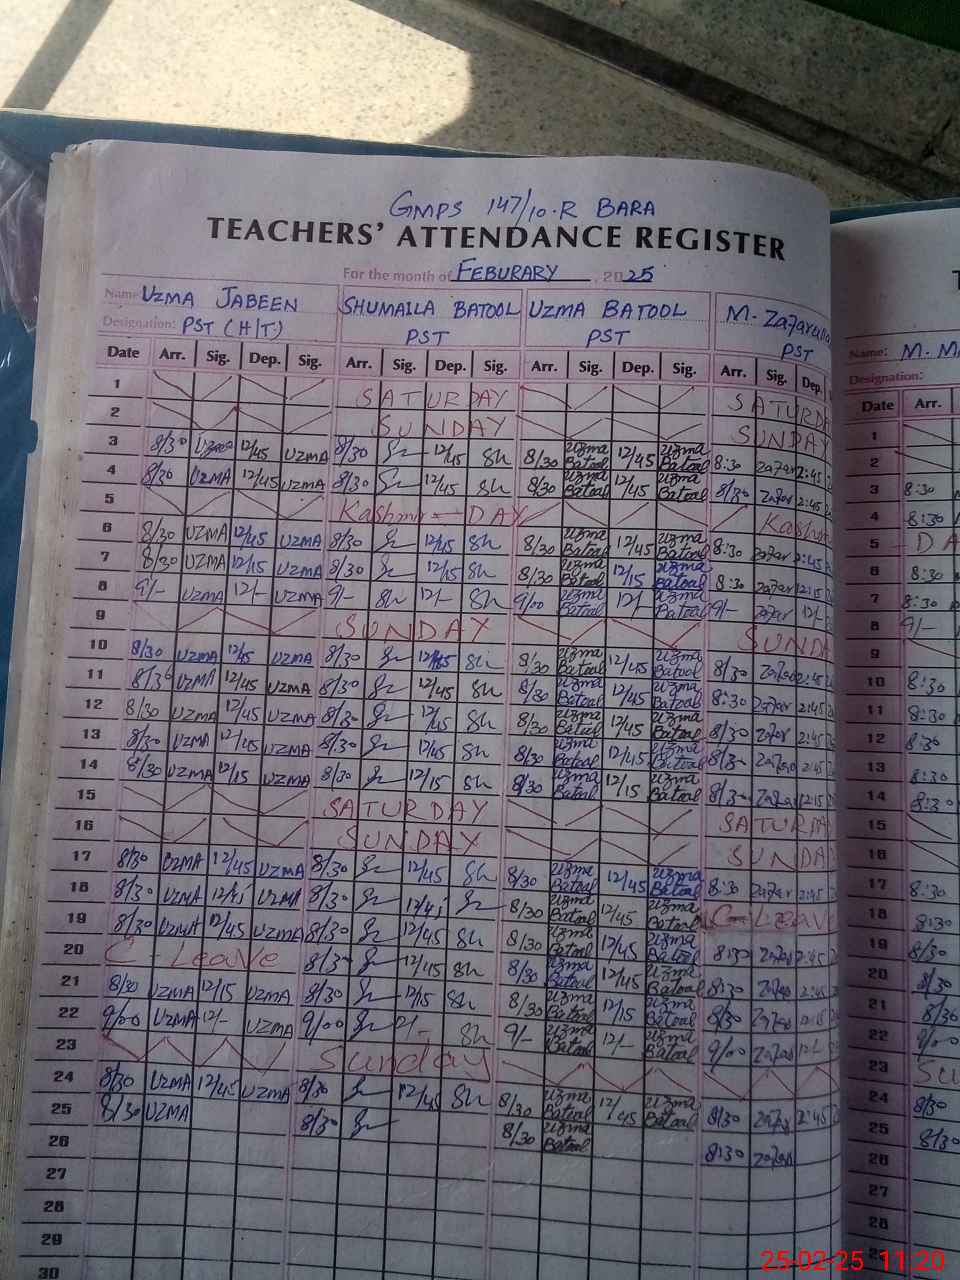 GMPS 147/10-R BARA
TEACHERS' ATTENDANCE REGISTER
For the month of FEBURARY, 2025
Name: UZMA JABEEN SHUMAILA BATOOL UZMA BATOOL M. Zafarulla Name: M. M
Designation: PST (H/T) PST PST PST Designation:
Date Arr. Sig. Dep. Sig. Arr. Sig. Dep. Sig. Arr. Sig. Dep. Sig. Arr. Sig. Dep. Date Arr.
1 SATURDAY SATURDA 1
2 SUNDAY SUNDAY 2
3 8/30 Uzma 12/45 UZMA 8/30 12/45 Sh 8/30 uzma Batool 12/45 uzma Batool 8:30 Zafar 2:45 3 8:30
4 8/30 UZMA 12/45 UZMA 8/30 12/45 Sh 8/30 uzma Batool 12/45 uzma Batool 8/30 Zafar 2:45 4 8:30
5 Kashmir DAY Kashm 5 DA
6 8/30 UZMA 12/45 UZMA 8/30 12/45 Sh 8/30 uzma Batool 12/45 uzma Batool 8:30 Zafar 2:45 6 8:30
7 8/30 UZMA 12/15 UZMA 8/30 12/15 Sh 8/30 uzma Batool 12/15 uzma Batool 8:30 Zafar 12:15 7 8:30
8 9/- UZMA 12/- UZMA 9/- Sh 12/- Sh 9/00 uzma Batool 12/- uzma Batool 9/- Zafar 12/- 8 9/-
9 SUNDAY SUNDA 9
10 8/30 UZMA 12/45 UZMA 8/30 12/45 Sh 8/30 uzma Batool 12/45 uzma Batool 8/30 Zafar 2:45 10 8:30
11 8/30 UZMA 12/45 UZMA 8/30 12/45 Sh 8/30 uzma Batool 12/45 uzma Batool 8:30 Zafar 2:45 11 8:30
12 8/30 UZMA 12/45 UZMA 8/30 12/45 Sh 8/30 uzma Batool 12/45 uzma Batool 8/30 Zafar 2:45 12 8:30
13 8/30 UZMA 12/45 UZMA 8/30 12/45 Sh 8/30 uzma Batool 12/45 uzma Batool 8/30 Zafar 2:45 13 8:30
14 8/30 UZMA 12/15 UZMA 8/30 12/15 Sh 8/30 uzma Batool 12/15 uzma Batool 8/30 Zafar 12:15 14 8:30
15 SATURDAY SATURDA 15
16 SUNDAY SUNDA 16
17 8/30 UZMA 12/45 UZMA 8/30 12/45 Sh 8/30 uzma Batool 12/45 uzma Batool 8:30 Zafar 2:45 17 8:30
18 8/30 UZMA 12/45 UZMA 8/30 12/45 8/30 uzma Batool 12/45 uzma Batool C-Leave 18 8:30
19 8/30 UZMA 12/45 UZMA 8/30 12/45 Sh 8/30 uzma Batool 12/45 uzma Batool 8:30 Zafar 2:45 19 8/30
20 C - Leave 8/30 12/45 Sh 8/30 uzma Batool 12/45 uzma Batool 8:30 Zafar 2:45 20 8/30
21 8/30 UZMA 12/15 UZMA 8/30 12/15 Sh 8/30 uzma Batool 12/15 uzma Batool 8/30 Zafar 12:15 21 8/30
22 9/00 UZMA 12/- UZMA 9/00 Sh 9/- uzma Batool 12/- uzma Batool 9/00 Zafar 12/- 22 9/00
23 Sunday 23 Su
24 8/30 UZMA 12/45 UZMA 8/30 12/45 Sh 8/30 uzma Batool 12/45 uzma Batool 8/30 Zafar 2:45 24 8/30
25 8/30 UZMA 8/30 8/30 uzma Batool 8:30 Zafar 25 8/30
26 26
27 27
28 28
29
30
25-02-25 11:20